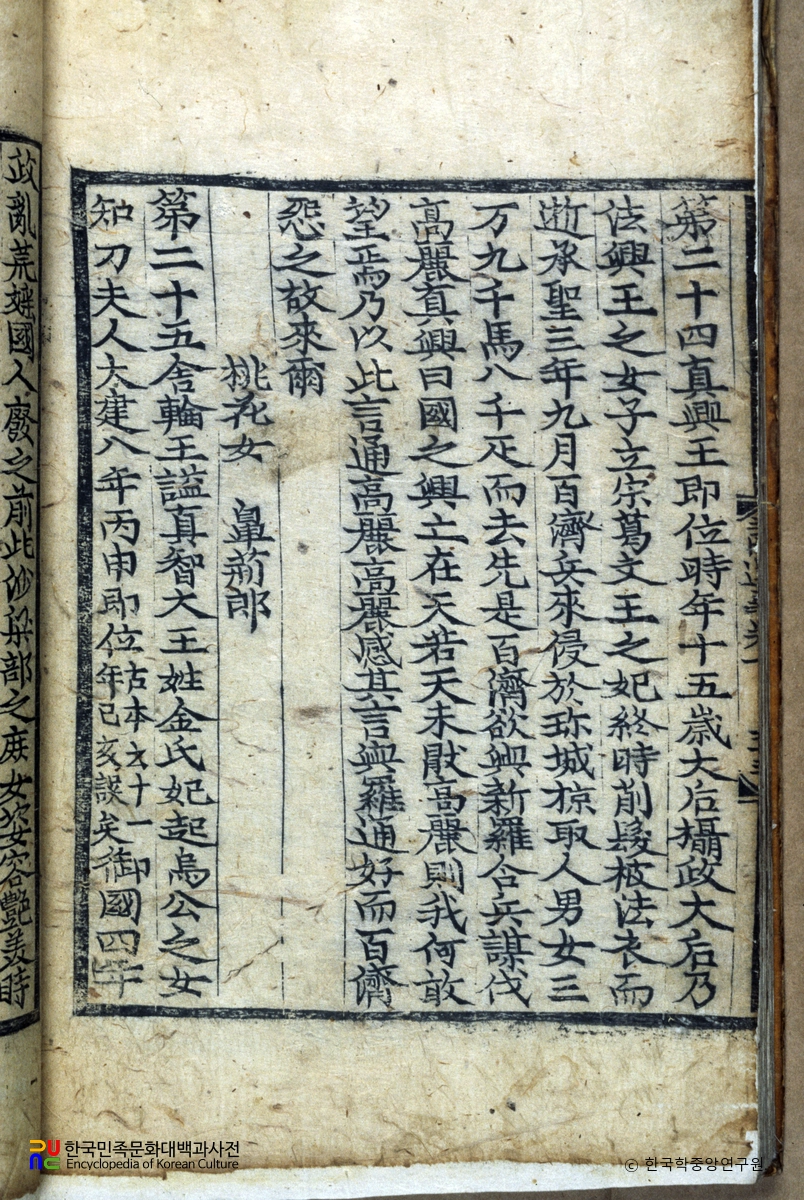 第二十四真興王即位時年十五歲大后攝政大后乃
法興王之女子立宗葛文王之妃終時削髮被法衣而
逝承聖三年九月百濟兵來侵於珎城掠取人男女三
万九千馬八千疋而去先是百濟欲與新羅合兵謀伐
高麗真興曰國之興亡在天若天未猒高麗則我何敢
望焉乃以此言通高麗高麗感其言與羅通好而百濟
怨之故來爾
桃花女 鼻荊郎
第二十五舍輪王謚真智大王姓金氏妃起烏公之女
知刀夫人大建八年丙申即位古本云十一年己亥誤矣御國四年
政亂荒婬國人廢之前此沙梁部之庶女姿容艶美時
한국민족문화대백과사전
Encyclopedia of Korean Culture
© 한국학중앙연구원